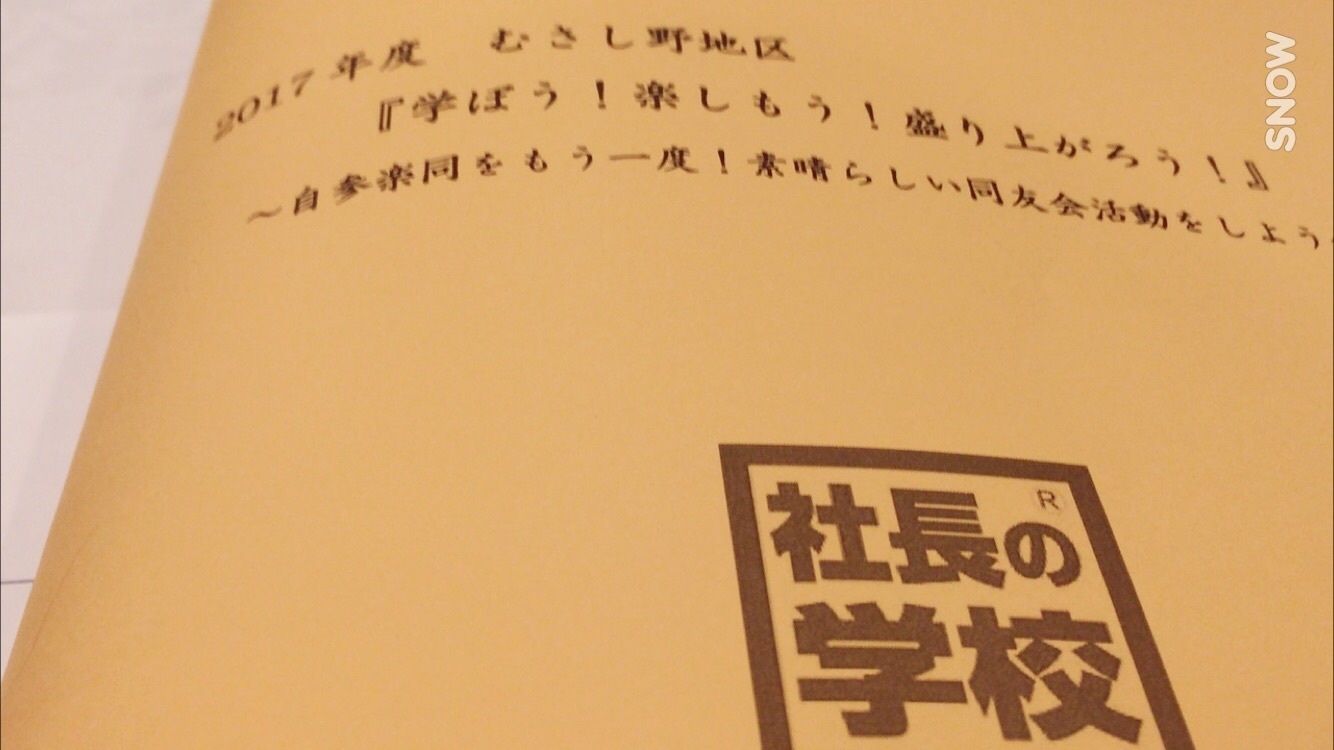 2017年度　むさし野地区
『学ぼう！楽しもう！盛り上がろう！』
～自参楽同をもう一度！素晴らしい同友会活動をしよう
社長の®
学校
SNOW